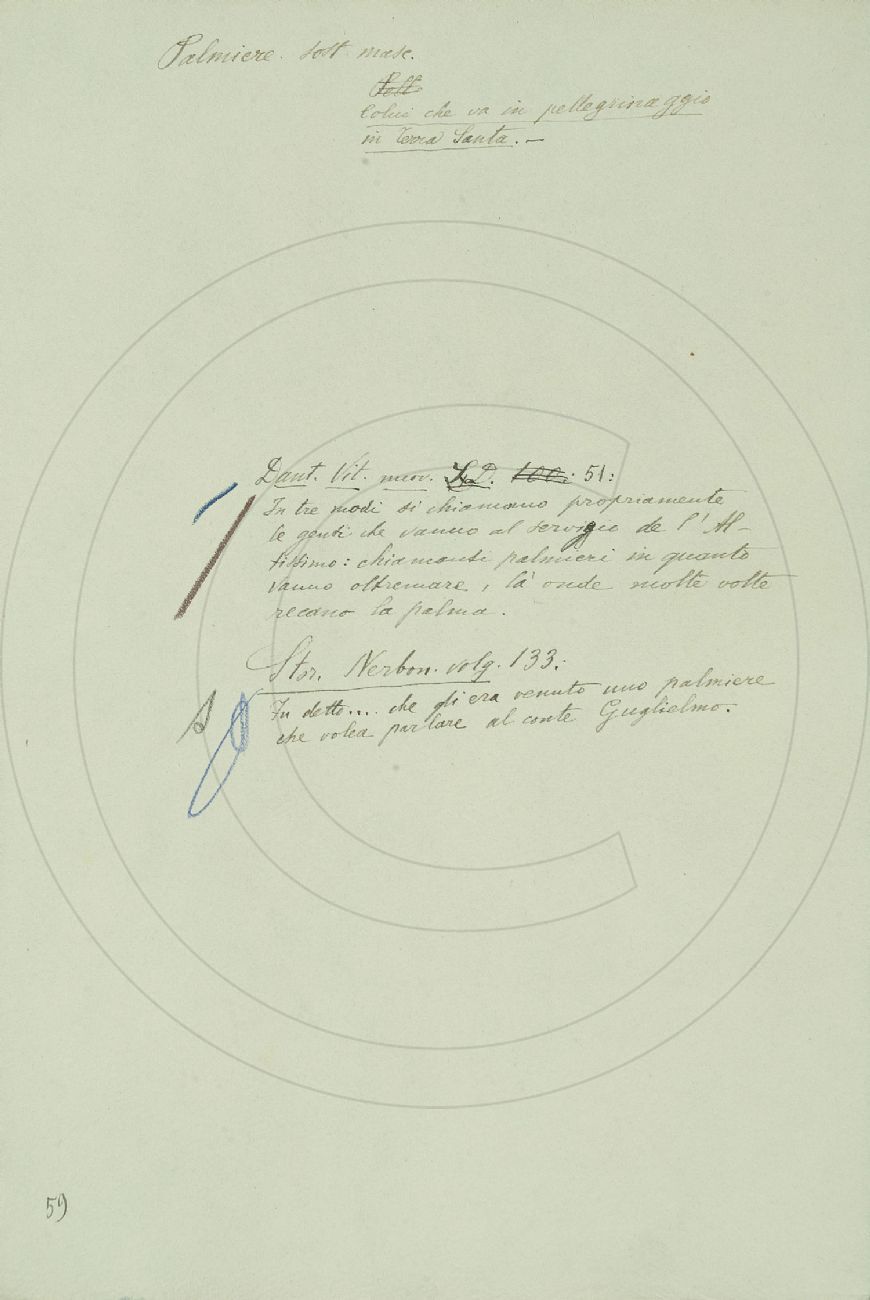 Palmiere. sost. masc.
Colui che va in pellegrinaggio
in Terra Santa. —
Dant. Vit. nuov. D. 100: 51:
In tre modi si chiamano propriamente
le genti che vanno al servigio de l'Al-
tissimo: chiamansi palmieri in quanto
vanno oltremare, là onde molte volte
recano la palma.
Stor. Nerbon. volg. 133:
Fu detto... che gli era venuto uno palmiere
che volea parlare al conte Guglielmo.
59